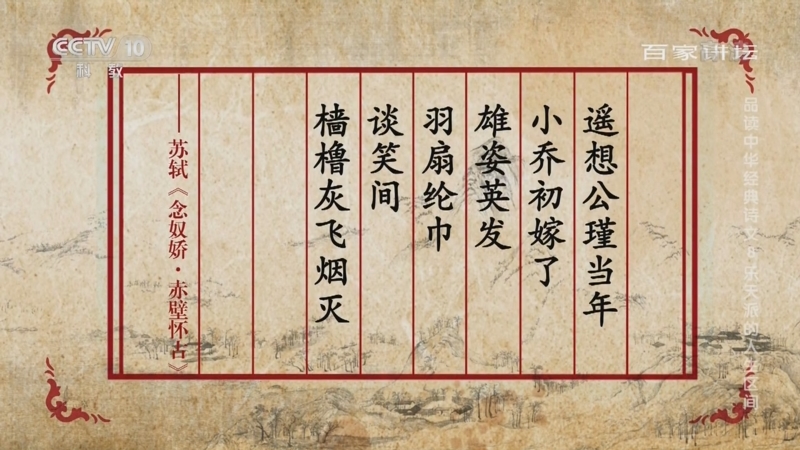 CCTV 10
科教
百家讲坛
遥想公瑾当年
小乔初嫁了
雄姿英发
羽扇纶巾
谈笑间
樯橹灰飞烟灭
——苏轼《念奴娇·赤壁怀古》
品读中华经典诗文 6 乐天派的人生区间